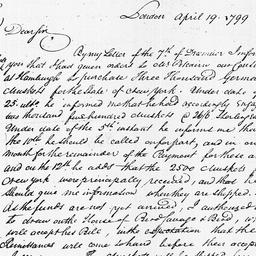 London April 19. 1799
Dear Sir
By my Letter of the 7th of
you that I had given orders to
at Hamburgh to purchase Three Thousand German
Muskets for the State of New York. Under date
25. ulto. he informed me that he had accordingly
two thousand five hundred muskets @ Sterling
Under date of the 5th instant he informs me that
the 10th he should be called on for part, and in one
Month for the remainder of the Payment for these
and on the 12th he adds that the 2500 Muskets
New York were principally received, and that he
should give me information when they are shipped.
As the funds are not yet arrived, I authorised
to draw on the House of Bird Savage & Bird, w
will accept his Bills, in the expectation that the
Remittances will come to hand before their
will be